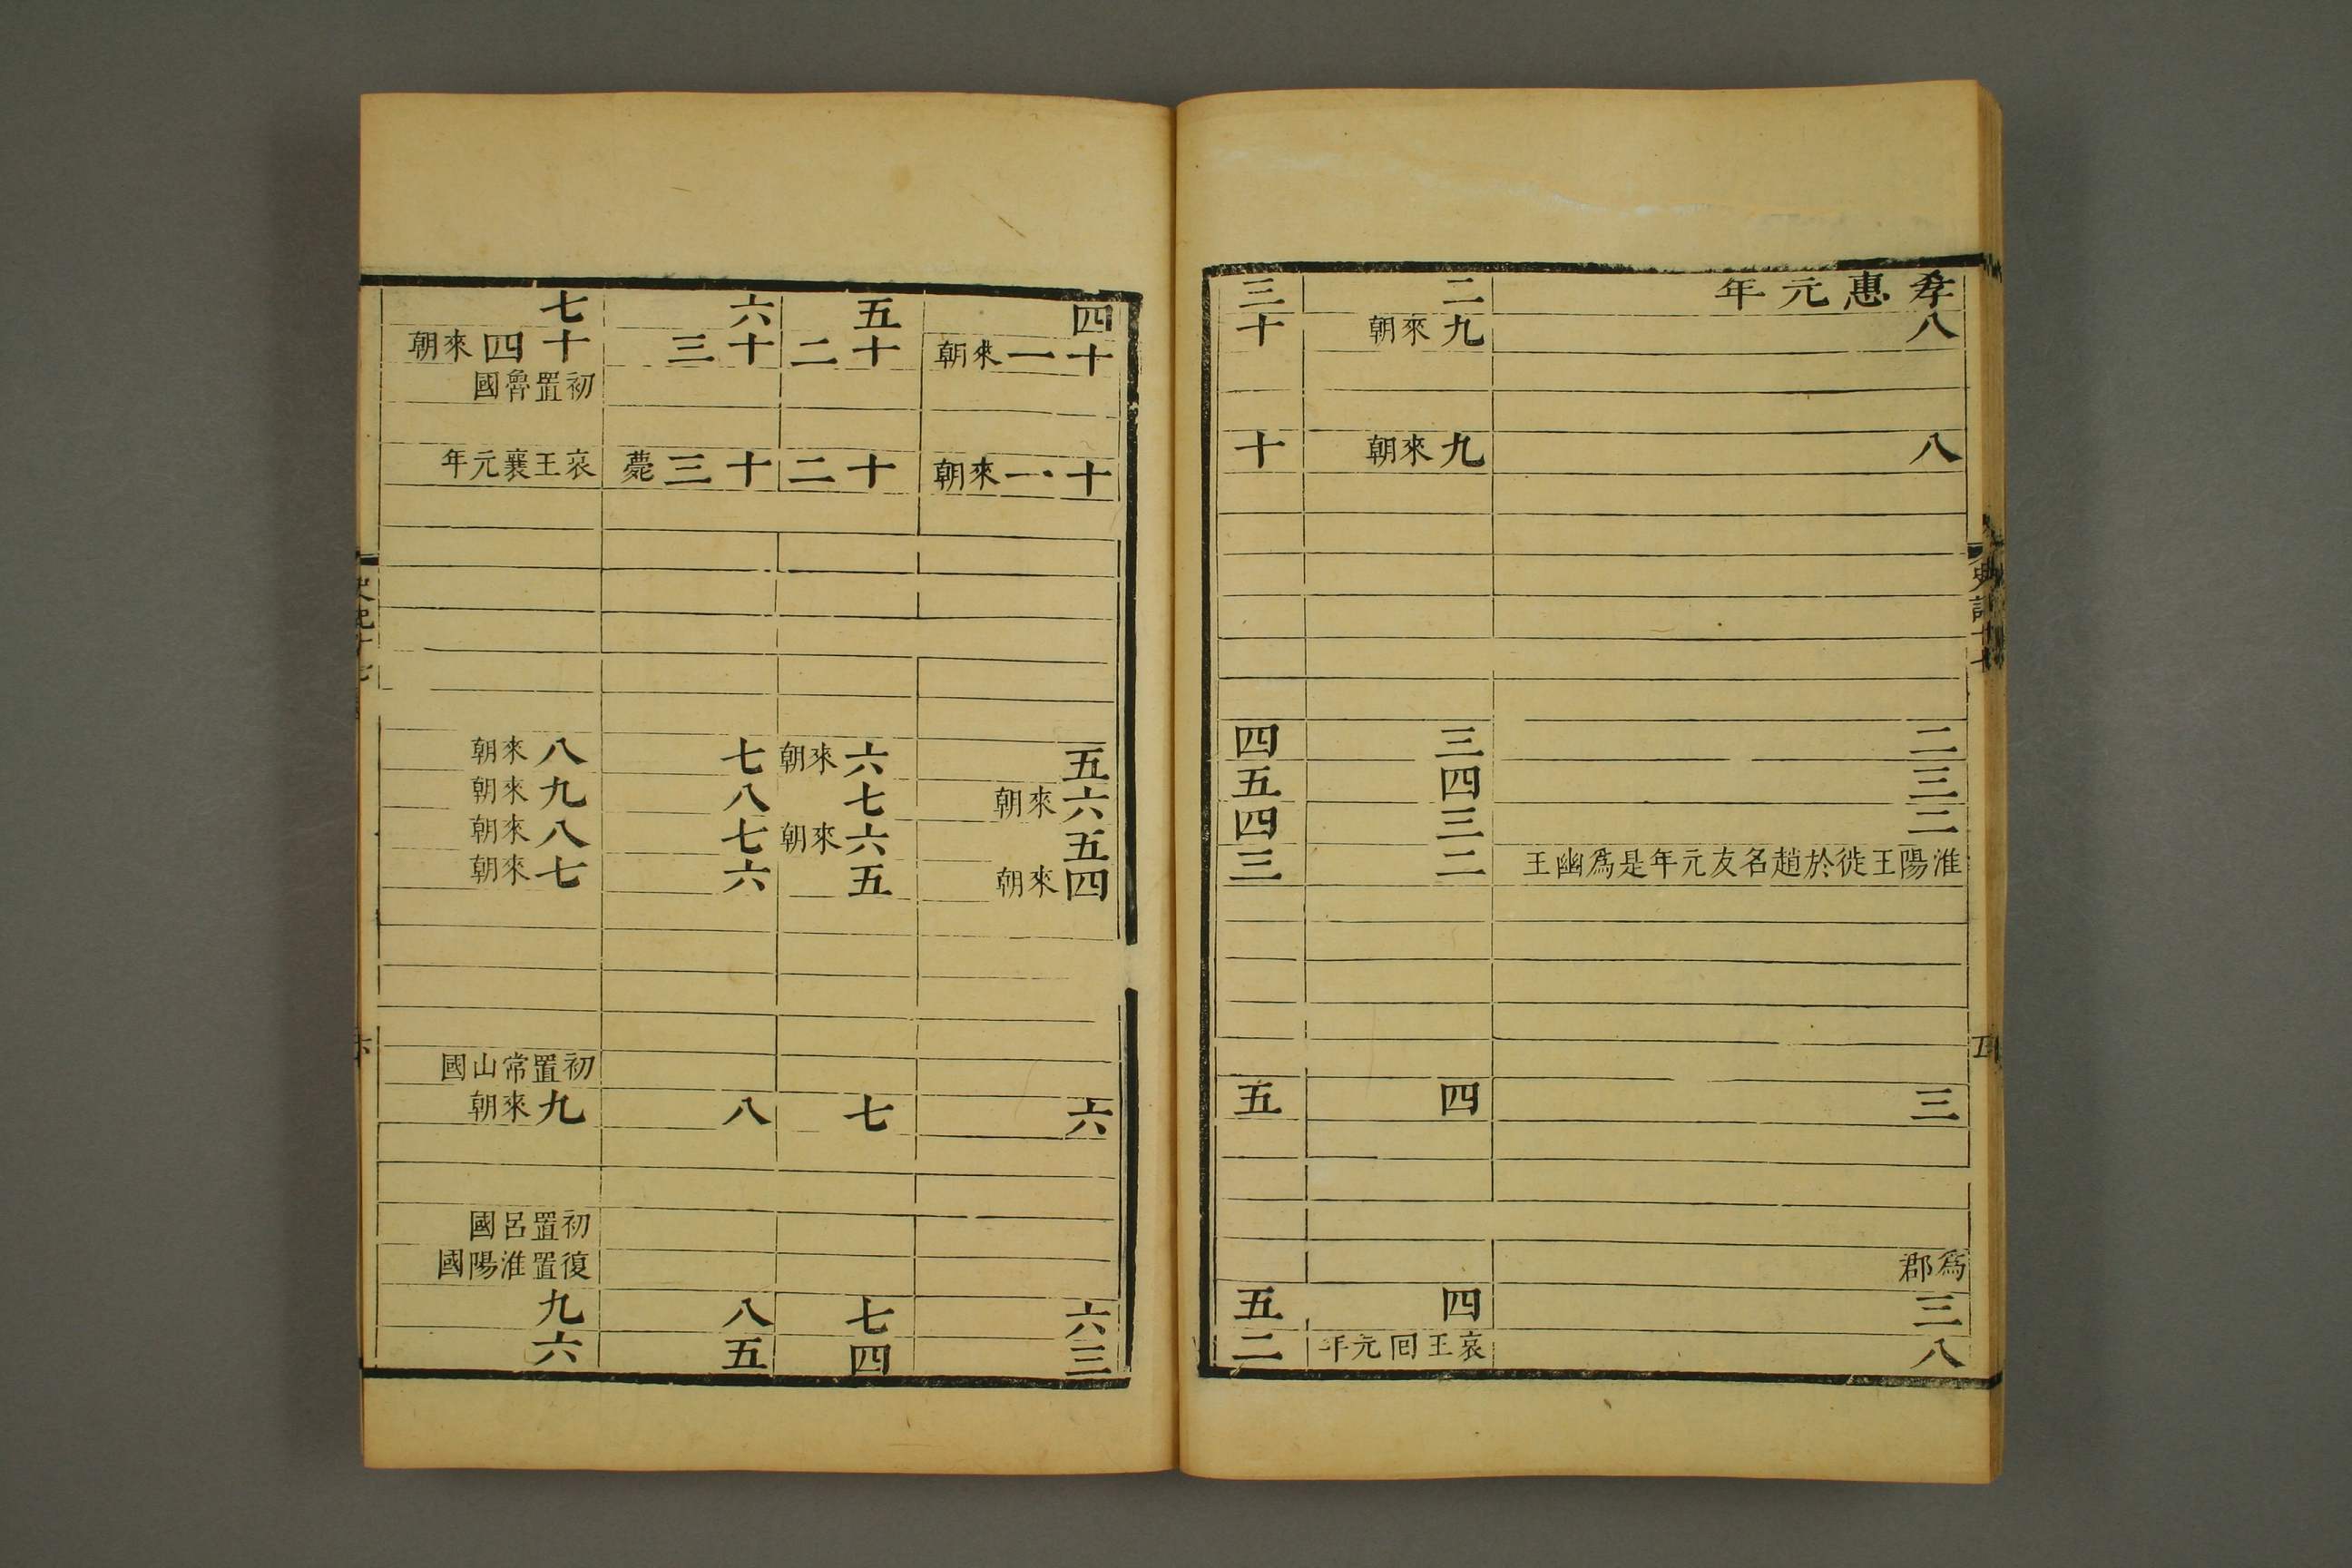 史記十七
五
孝惠元年
八
八
二
三
二
淮陽王徙於趙名友元年是爲幽王
三
爲郡
三
八
二
九來朝
九來朝
三
四
三
二
四
四
哀王回元年
三
十
十
四
五
四
三
五
五
二
四
十一來朝
十一來朝
五
六來朝
五
四來朝
六
六
三
五
十二
十二
六來朝
七
六來朝
五
七
七
四
六
十三
十三薨
七
八
七
六
八
八
五
七
十四來朝
初置魯國
哀王襄元年
八來朝
九來朝
八來朝
七來朝
初置常山國
九來朝
初置呂國
復置淮陽國
九
六
史記十七